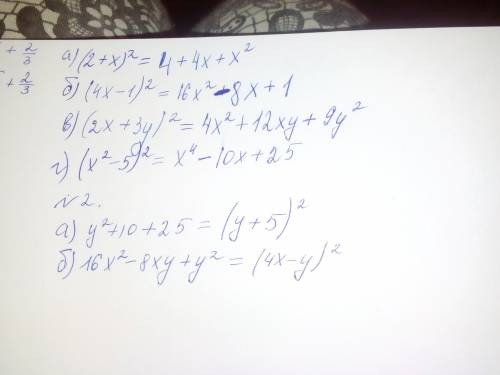 + 2/3
+ 2/3
а) (2+x)² = 4 + 4x + x²
б) (4x-1)² = 16x² - 8x + 1
в) (2x + 3y)² = 4x² + 12xy + 9y²
г) (x² - 5)² = x⁴ - 10x + 25
№ 2.
а) y² + 10 + 25 = (y + 5)²
б) 16x² - 8xy + y² = (4x - y)²